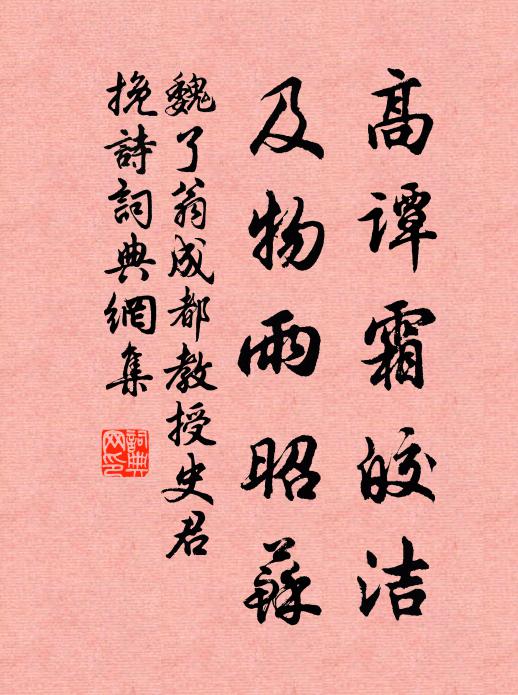 高谭霜皎洁
及物雨昭蘇
魏了翁成都教授史君
挽詩詞典網集
詞典網印